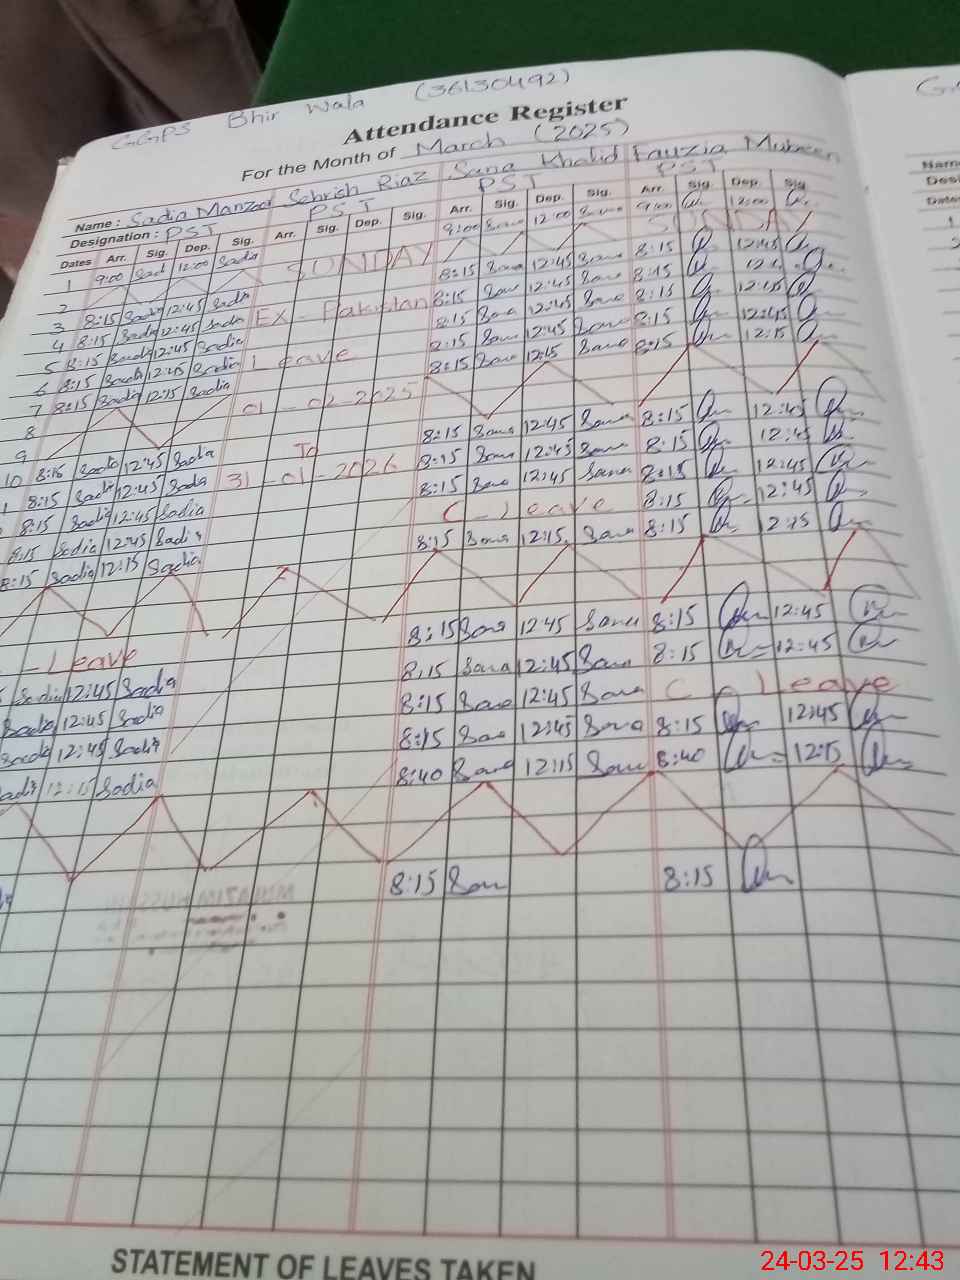 GGPS Bhir Wala (36130492)
Attendance Register
For the Month of March (2025)
Name : Sadia Manzoor Sehrish Riaz Sana Khalid Fauzia Mubeen
Designation : PST PST PST PST
Dates Arr. Sig. Dep. Sig. Arr. Sig. Dep. Sig. Arr. Sig. Dep. Sig. Arr. Sig. Dep. Sig.
1 9:00 Sadi 12:00 Sadia 9:00 Sana 12:00 Sana 9:00 12:00
2 SUNDAY SUNDAY
3 8:15 Sadia 12:45 Sadia 8:15 Sana 12:45 Sana 8:15 12:45
4 8:15 Sadia 12:45 Sadia Ex - Pakistan 8:15 Sana 12:45 Sana 8:15
5 8:15 Sadia 12:45 Sadia 8:15 Sana 12:45 Sana 8:15 12:45
6 8:15 Sadia 12:45 Sadia Leave 8:15 Sana 12:45 Sana 8:15 12:45
7 8:15 Sadia 12:15 Sadia 8:15 Sana 12:15 Sana 8:15 12:15
8 01-02-2025
9
10 8:15 Sadia 12:45 Sadia To 8:15 Sana 12:45 Sana 8:15 12:45
8:15 Sadia 12:45 Sadia 31-01-2026 8:15 Sana 12:45 Sana 8:15 12:45
8:15 Sadia 12:45 Sadia 8:15 Sana 12:45 Sana 8:15 12:45
8:15 Sadia 12:45 Sadia C-Leave 8:15 12:45
8:15 Sadia 12:15 Sadia 8:15 Sana 12:15 Sana 8:15 12:15
- Leave 8:15 Sana 12:45 Sana 8:15 12:45
Sadia 12:45 Sadia 8:15 Sana 12:45 Sana 8:15 12:45
Sadia 12:45 Sadia 8:15 Sana 12:45 Sana C - Leave
Sadia 12:45 Sadia 8:15 Sana 12:45 Sana 8:15 12:45
12:15 Sadia 8:40 Sana 12:15 Sana 8:40 12:15
8:15 Sana 8:15
STATEMENT OF LEAVES TAKEN
24-03-25 12:43